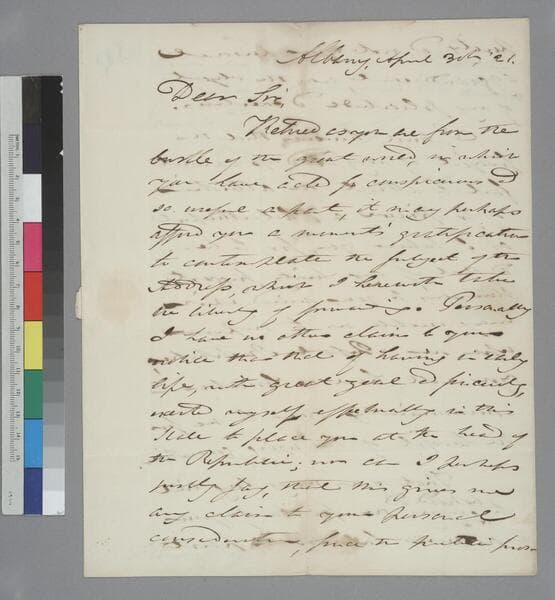 Albany, April 30th '21.
Dear Sir,
Retired as you are from the
bustle of the great world, in which
you have acted so conspicuous &
so useful a part, it may perhaps
afford you a moment's gratification
to contemplate the subject of the
Address, which I herewith take
the liberty of forwarding. Personally
I have no other claim to your
notice than that of having in early
life, with great zeal & sincerity,
exerted myself effectually in this
State to place you at the head of
the Republic; nor can I perhaps
justly say, that this gives me
any claim to your personal
consideration, since the public